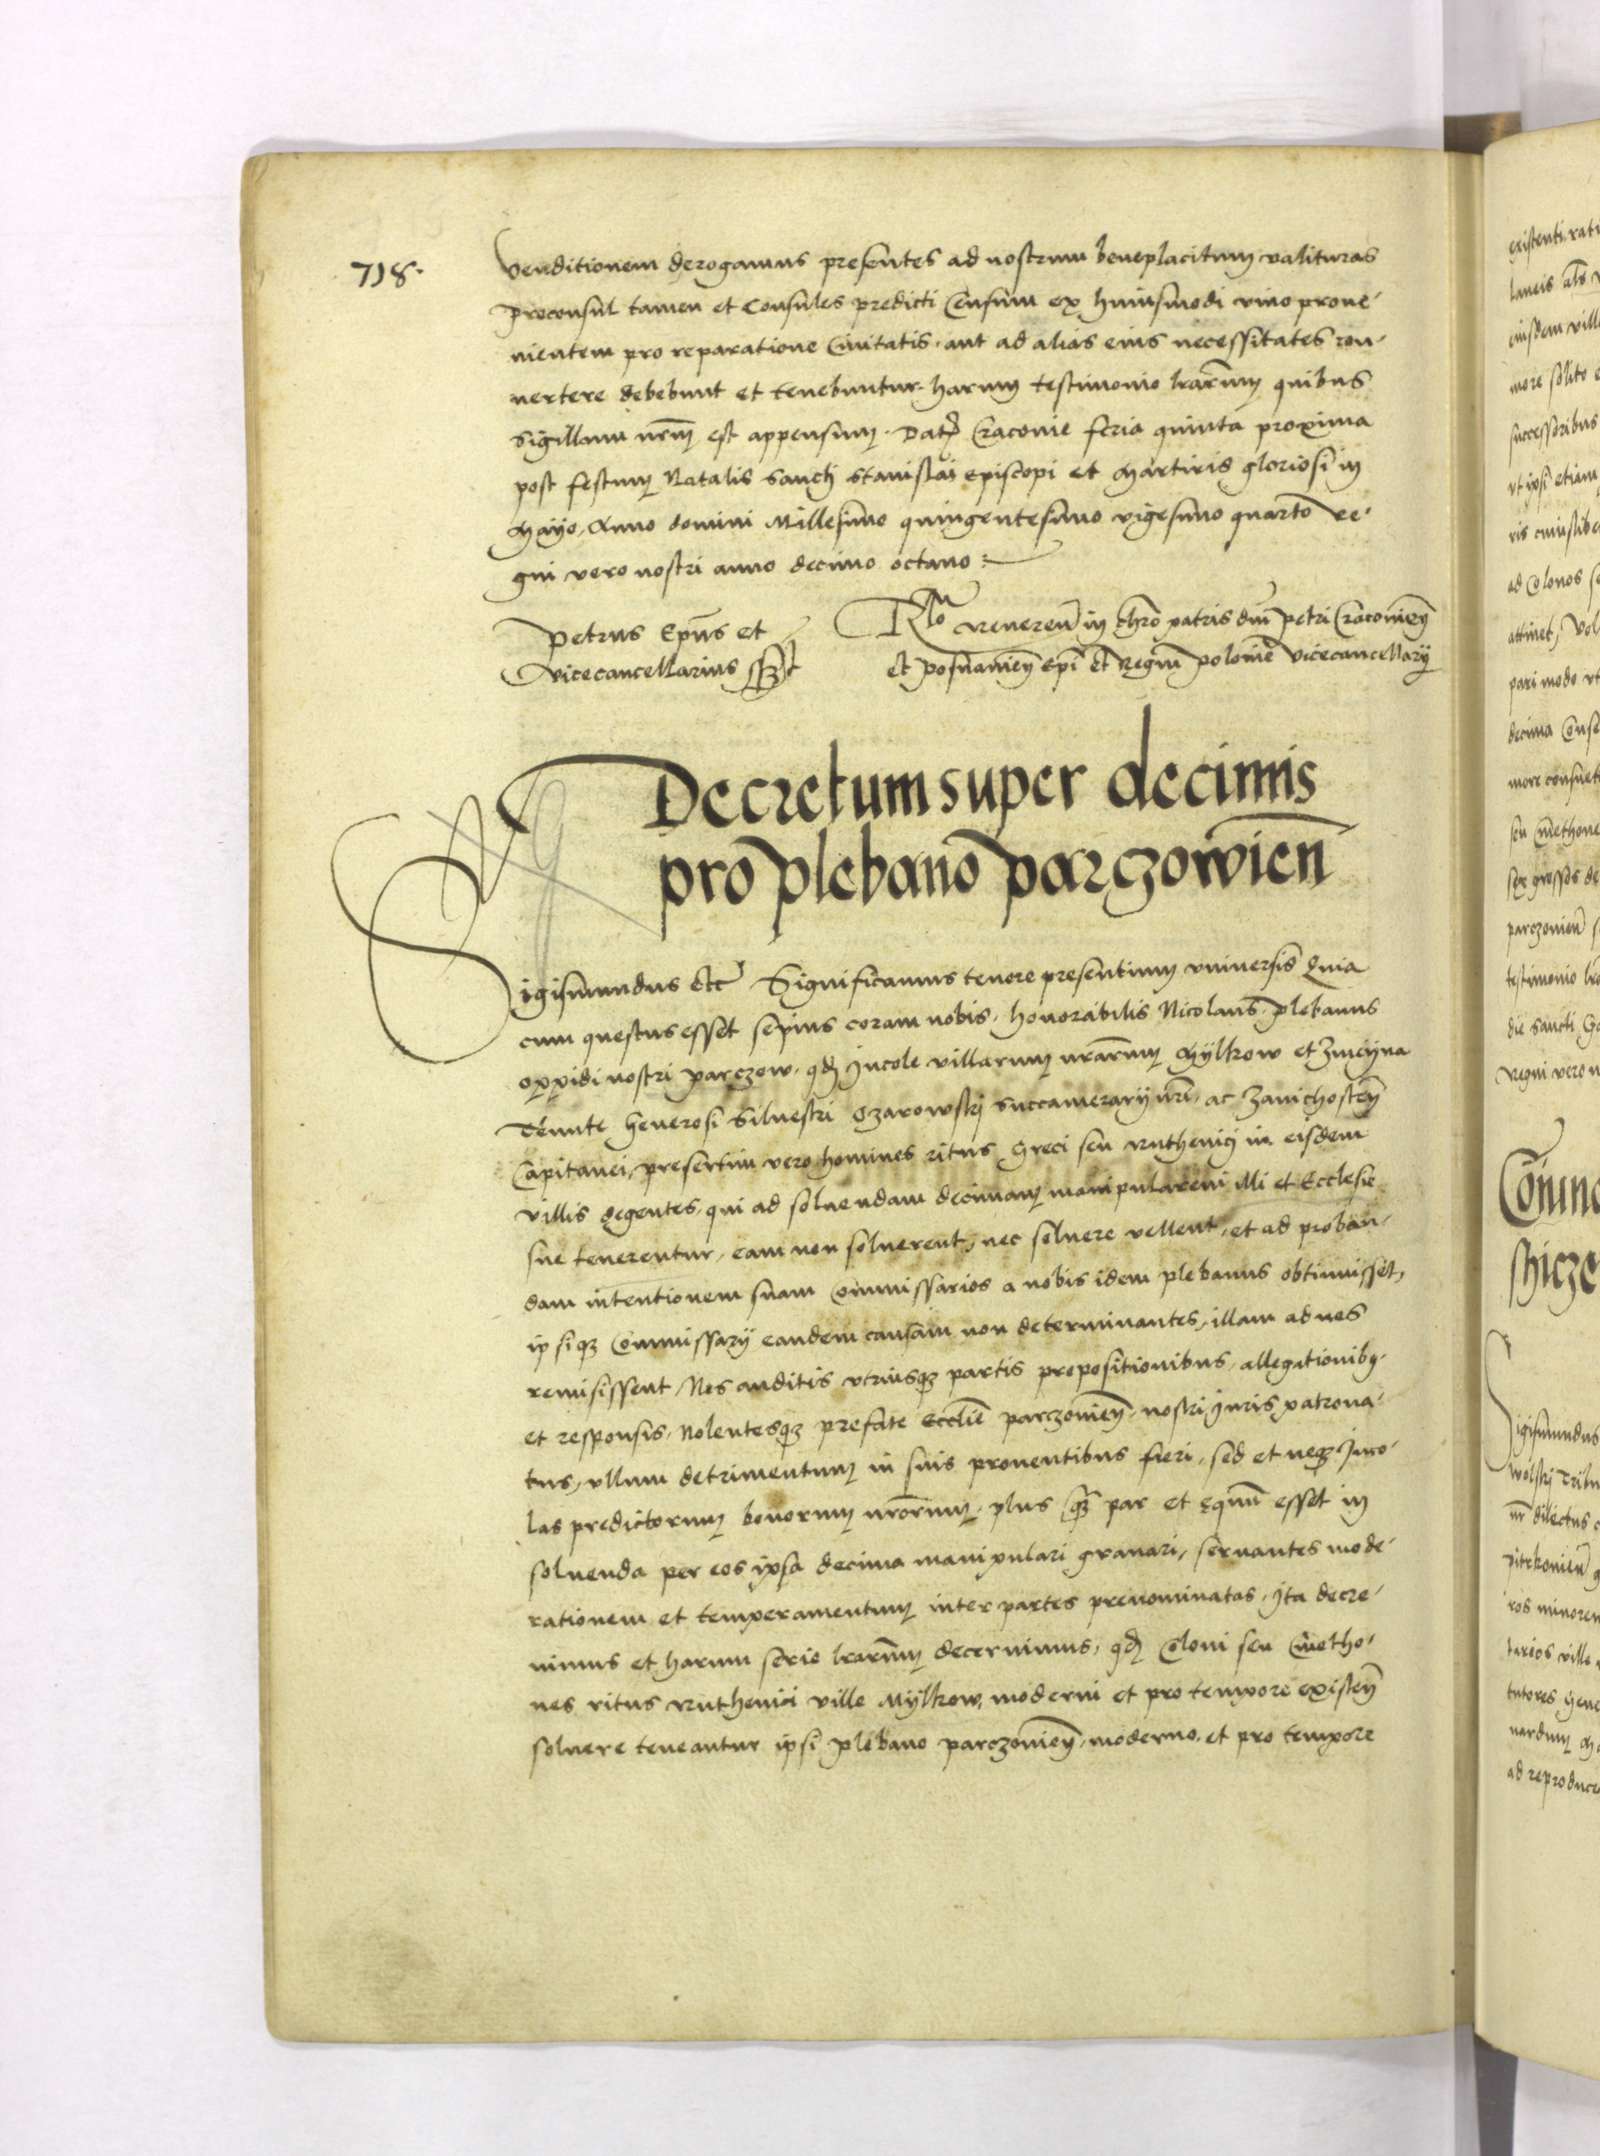 718.
venditionem derogamus presentes ad nostrum beneplacitum valituras
Proconsul tamen et Consules predicti Censum ex huiusmodi vino prove-
nientem pro reparatione Civitatis. aut ad alias eius necessitates con-
vertere debebunt et tenebuntur. harum testimonio lrarum quibus
Sigillum nrm est appensum. Dat Cracovie feria quinta proxima
post festum Natalis Sancti Stanislai Episcopi et Martiris gloriosi in
Mayo. Anno domini Millesimo quingentesimo vigesimo quarto Re-
gni vero nostri anno decimo octavo
Petrus Epus et
Vicecancellarius sst
Rlo reveren in chro patris dni Petri Cracovien
et Posnanien Epi et Regni Polonie Vicecancellarij
Decretum super decimis
pro plebano parczowien
Sigismundus Etc Significamus tenore presentium universis Quia
cum questus esset sepius coram nobis. honorabilis Nicolaus plebanus
oppidi nostri parczow. qd Incole villarum nrarum Mylkow et Zmeyna
Tenute Generosi Silvestri Ozarowsky Succamerarij nri. ac Zavichosten
Capitanei, presertim vero homines ritus Greci seu ruthenici in eisdem
villis degentes, qui ad solvendam decimam manipularem illi et Ecclesie
sue tenerentur, eam non solverent, nec solvere vellent, et ad proban-
dam intentionem suam Commissarios a nobis idem plebanus obtinuisset,
ipsiq Commissarij eandem causam non determinantes, illam ad nos
remisissent, Nos auditis utriusq partis propositionibus, allegationibq.
et responsis, Nolentesq prefate Ecclie parczovien. nostri Iuris patrona-
tus, ullum detrimentum in suis proventibus fieri, sed et neq Inco-
las predictorum bonorum nrorum. plus q par et equu esset in
solvenda per eos ipsa decima manipulari gravari, servantes mode-
rationem et temperamentum inter partes prenominatas, Ita decre-
vimus et harum serie lrarum decernimus, qd Coloni seu Cmetho-
nes ritus ruthenici ville Mylkow, moderni et pro tempore existen
solvere teneantur ipsi plebano parczovien, moderno. et pro tempore